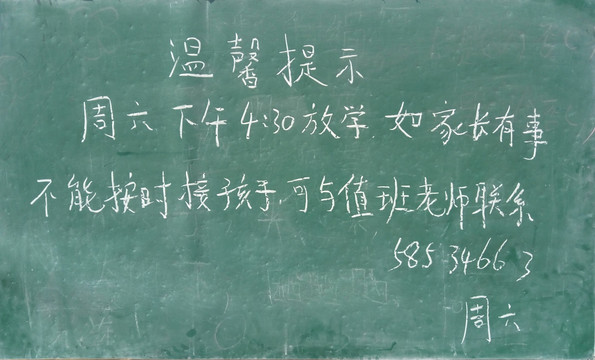 温馨提示
周六下午4:30放学.如家长有事
不能按时接孩子,可与值班老师联系
58534663
周六